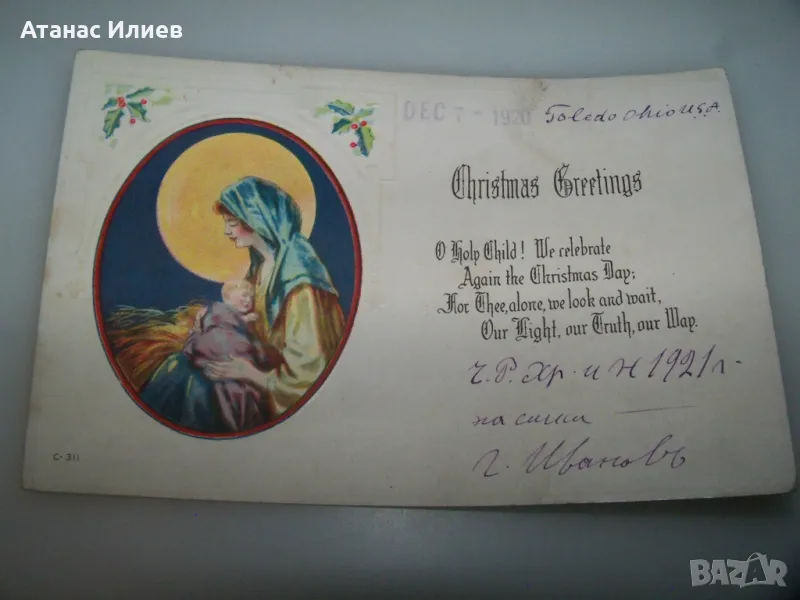 Атанас Илиев
DEC 7 - 1920 Toledo Ohio U.S.A.
Christmas Greetings
O Holy Child! We celebrate
Again the Christmas Day;
For Thee, alone, we look and wait,
Our Light, our Truth, our Way.
Ч. Р. Хр. и Н 1921 г.
на
г. Ивановъ
C-311
BAZAR